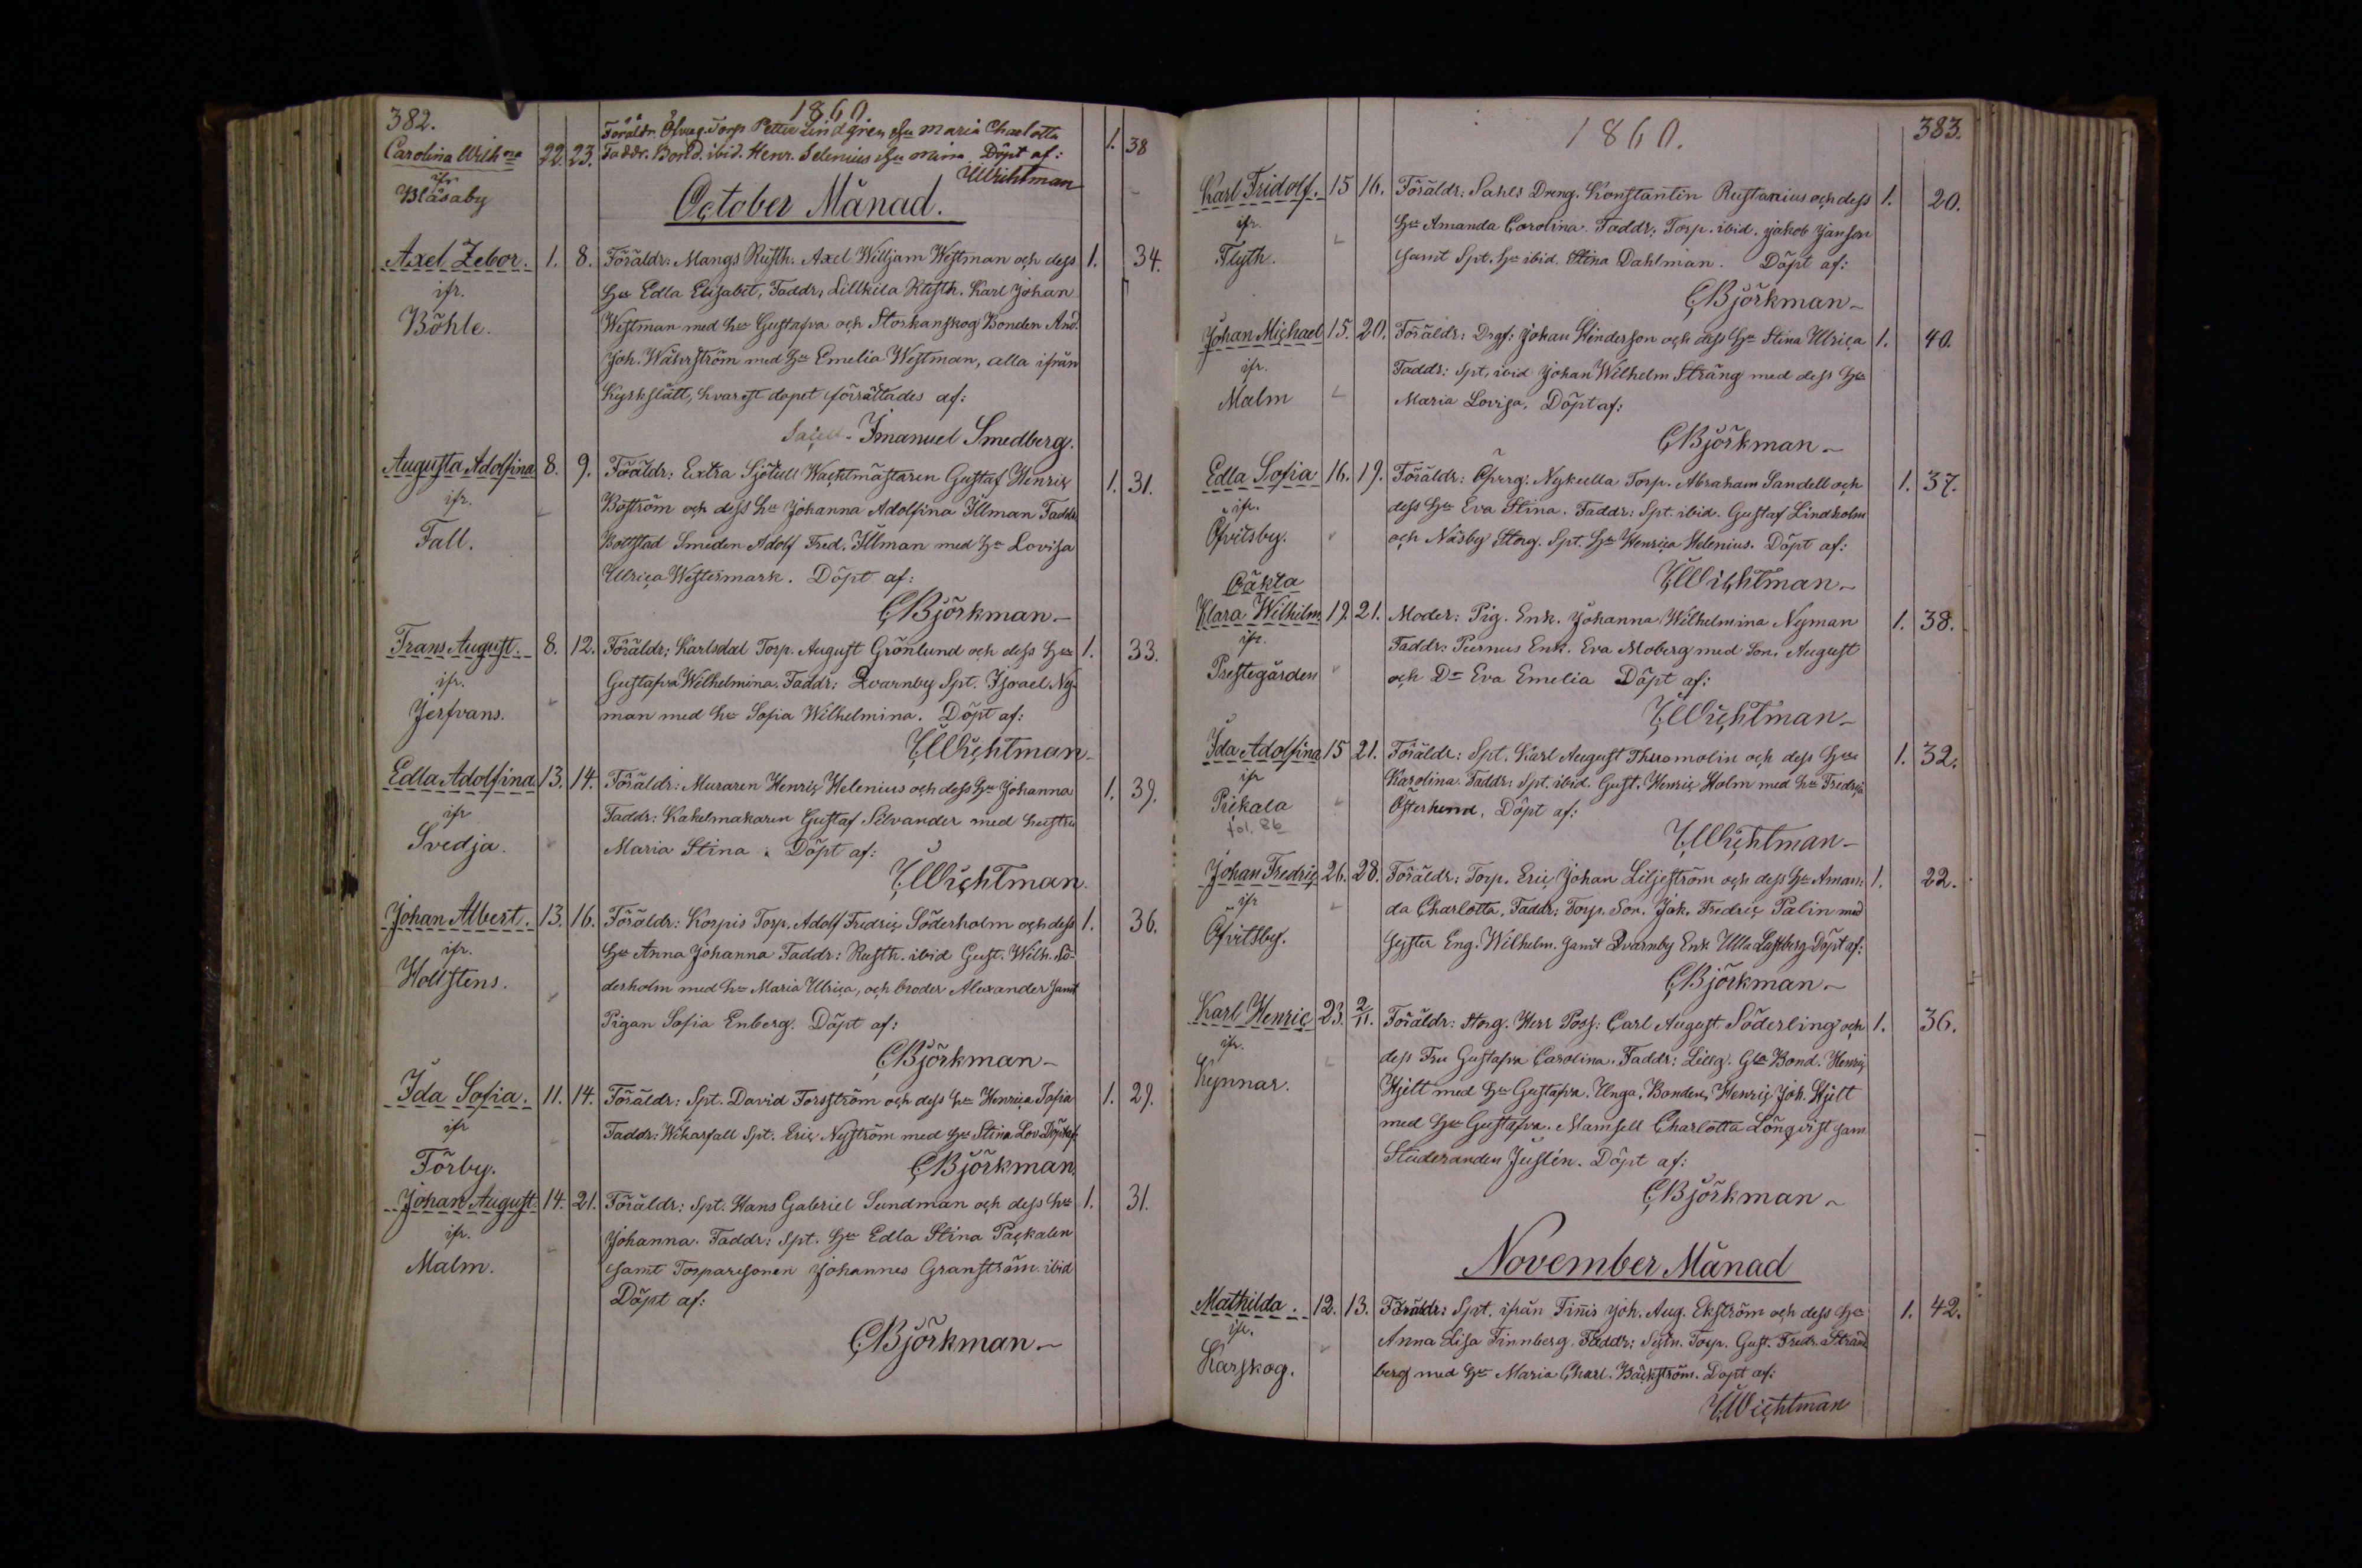 382.
1860
Carolina Wilh:na 22. 23. Föräldr. Öfvag. Torp Petter Lindgren o hu Maria Charlotta 1. 38
ifr Bläsaby
Faddr. Bond. ibid. Henr. Selenius o hu Mina. Döpt af:
Wichtman
October Månad.
Axel Zebor. 1. 8. Föräldr: Mangs Rusth. Axel Willjam Westman och dess 1. 34.
ifr. hu Edla Elisabet, Faddr, Lillkila Rusth. Karl Johan
Böhle. Westman med hu Gustafva och Storkanskog Bonden And.
Joh. Wåhrström med Hu Emelia Westman, alla ifrån
Kyrkslätt, hvarest dopet förrättades af:
Imanuel Smedberg.
Augusta Adolfina 8. 9. Föräldr: Extra Sjötull Wachtmästaren Gustaf Henric 1. 31.
ifr. Boström och dess hu Johanna Adolfina Illman Faddr
Fall. Bottstad Smeden Adolf Fred. Illman med hu Lovisa
Ulrica Westermark. Döpt af:
CBjörkman
Frans August. 8. 12. Föräldr: Karlsdal Torp. August Grönlund och dess hu 1. 33.
ifr. Gustafva Wilhelmina. Faddr: Qvarnby Spt. Israel Ny-
Jerfvans. man med hu Sofia Wilhelmina. Döpt af:
Wichtman
Edla Adolfina 13. 14. Föräldr: Muraren Henric Helenius och dess hu Johanna 1. 39.
ifr Faddr: Kakelmakaren Gustaf Silvander med hustru
Svedja. Maria Stina. Döpt af:
Wichtman.
Johan Albert. 13. 16. Föräldr: Korpis Torp. Adolf Fredric Söderholm och dess 1. 36.
ifr. hu Anna Johanna Faddr: Rusth. ibid Gust. Wilh. Sö-
Hollstens. derholm med hu Maria Ulrica, och broder Alexander samt
Pigan Sofia Enberg. Döpt af:
CBjörkman
Ida Sofia. 11. 14. Föräldr: Spt. David Forsström och dess hu Henrica Sofia 1. 29.
ifr Faddr: Wiharfall Spt. Eric Nyström med hu Stina Lov. Döpt af
Förby. CBjörkman.
Johan August. 14. 21. Föräldr: Spt. Hans Gabriel Sundman och dess hu 1. 31.
ifr. Johanna. Faddr: Spt. hu Edla Stina Packalen
Malm. samt Torparesonen Johannes Granström ibid
Döpt af:
CBjörkman
1860.
383.
Karl Fridolf. 15 16. Föräldr: Sahls Dreng. Konstantin Rustanius och dess 1. 20.
ifr. hu Amanda Carolina. Faddr: Torp. ibid. Jakob Janson
Flyth. samt Spt. hu ibid. Stina Dahlman. Döpt af:
CBjörkman
Johan Michael 15. 20. Föräldr: Drgf: Johan Hinderson och dess hu Stina Ulrica 1. 40.
ifr. Faddr: Spt, ibid Johan Wilhelm Sträng med dess hu
Malm Maria Lovisa. Döpt af:
CBjörkman
Edla Sofia 16. 19. Föräldr: Nykulla Torp. Abraham Sandell och 1. 37.
ifr. dess hu Eva Stina. Faddr: Spt. ibid. Gustaf Lindholm
Ofvitsby. och Näsby Storg. Spt. hu Henrica Helenius. Döpt af:
Wichtman
Oäkta
Klara Wilhelm. 19. 21. Moder: Pig. Enk. Johanna Wilhelmina Nyman 1. 38.
ifr. Faddr: Purnus Enk. Eva Moberg med Son. August
Prestegården och Dr Eva Emelia Döpt af:
Wichtman
Ida Adolfina 15 21. Föräldr: Spt. Karl August Thuromolin och dess hu 1. 32.
ifr Karolina. Faddr: Spt. ibid. Gust. Henric Holm med hu Fredrica
Pickala Österlund. Döpt af:
fol. 86
Wichtman
Johan Fredric 26. 28. Föräldr: Torp. Eric Johan Liljeström och dess hu Aman- 1. 22.
ifr da Charlotta. Faddr: Torp. Son. Jak. Fredric Palin med
Ofvitsby. Syster Eng. Wilhelm. samt Qvarnby Enk Ulla Luftberg. Döpt af:
CBjörkman
Karl Henric 23. 2/11. Föräldr: Storg. Herr Poss: Carl August Söderling och 1. 36.
ifr. dess Fru Gustafva Carolina. Faddr: Lillg. Gla Bond. Henric
Kynnar. Hjelt med hu Gustafva. Unga Bonden Henric Joh. Hjelt
med hu Gustafva. Mamsell Charlotta Lönqvist sam
Studeranden Juslén. Döpt af:
CBjörkman
November Månad
Mathilda. 12. 13. Föräldr: Spt. ifrån Finnis Joh. Aug. Ekström och dess hu 1. 42.
ifr. Anna Lisa Finnberg. Faddr: Sytn. Torp. Gust. Fredr. Strand
Karskog. berg med hu Maria Charl. Bäckström. Döpt af:
Wichtman